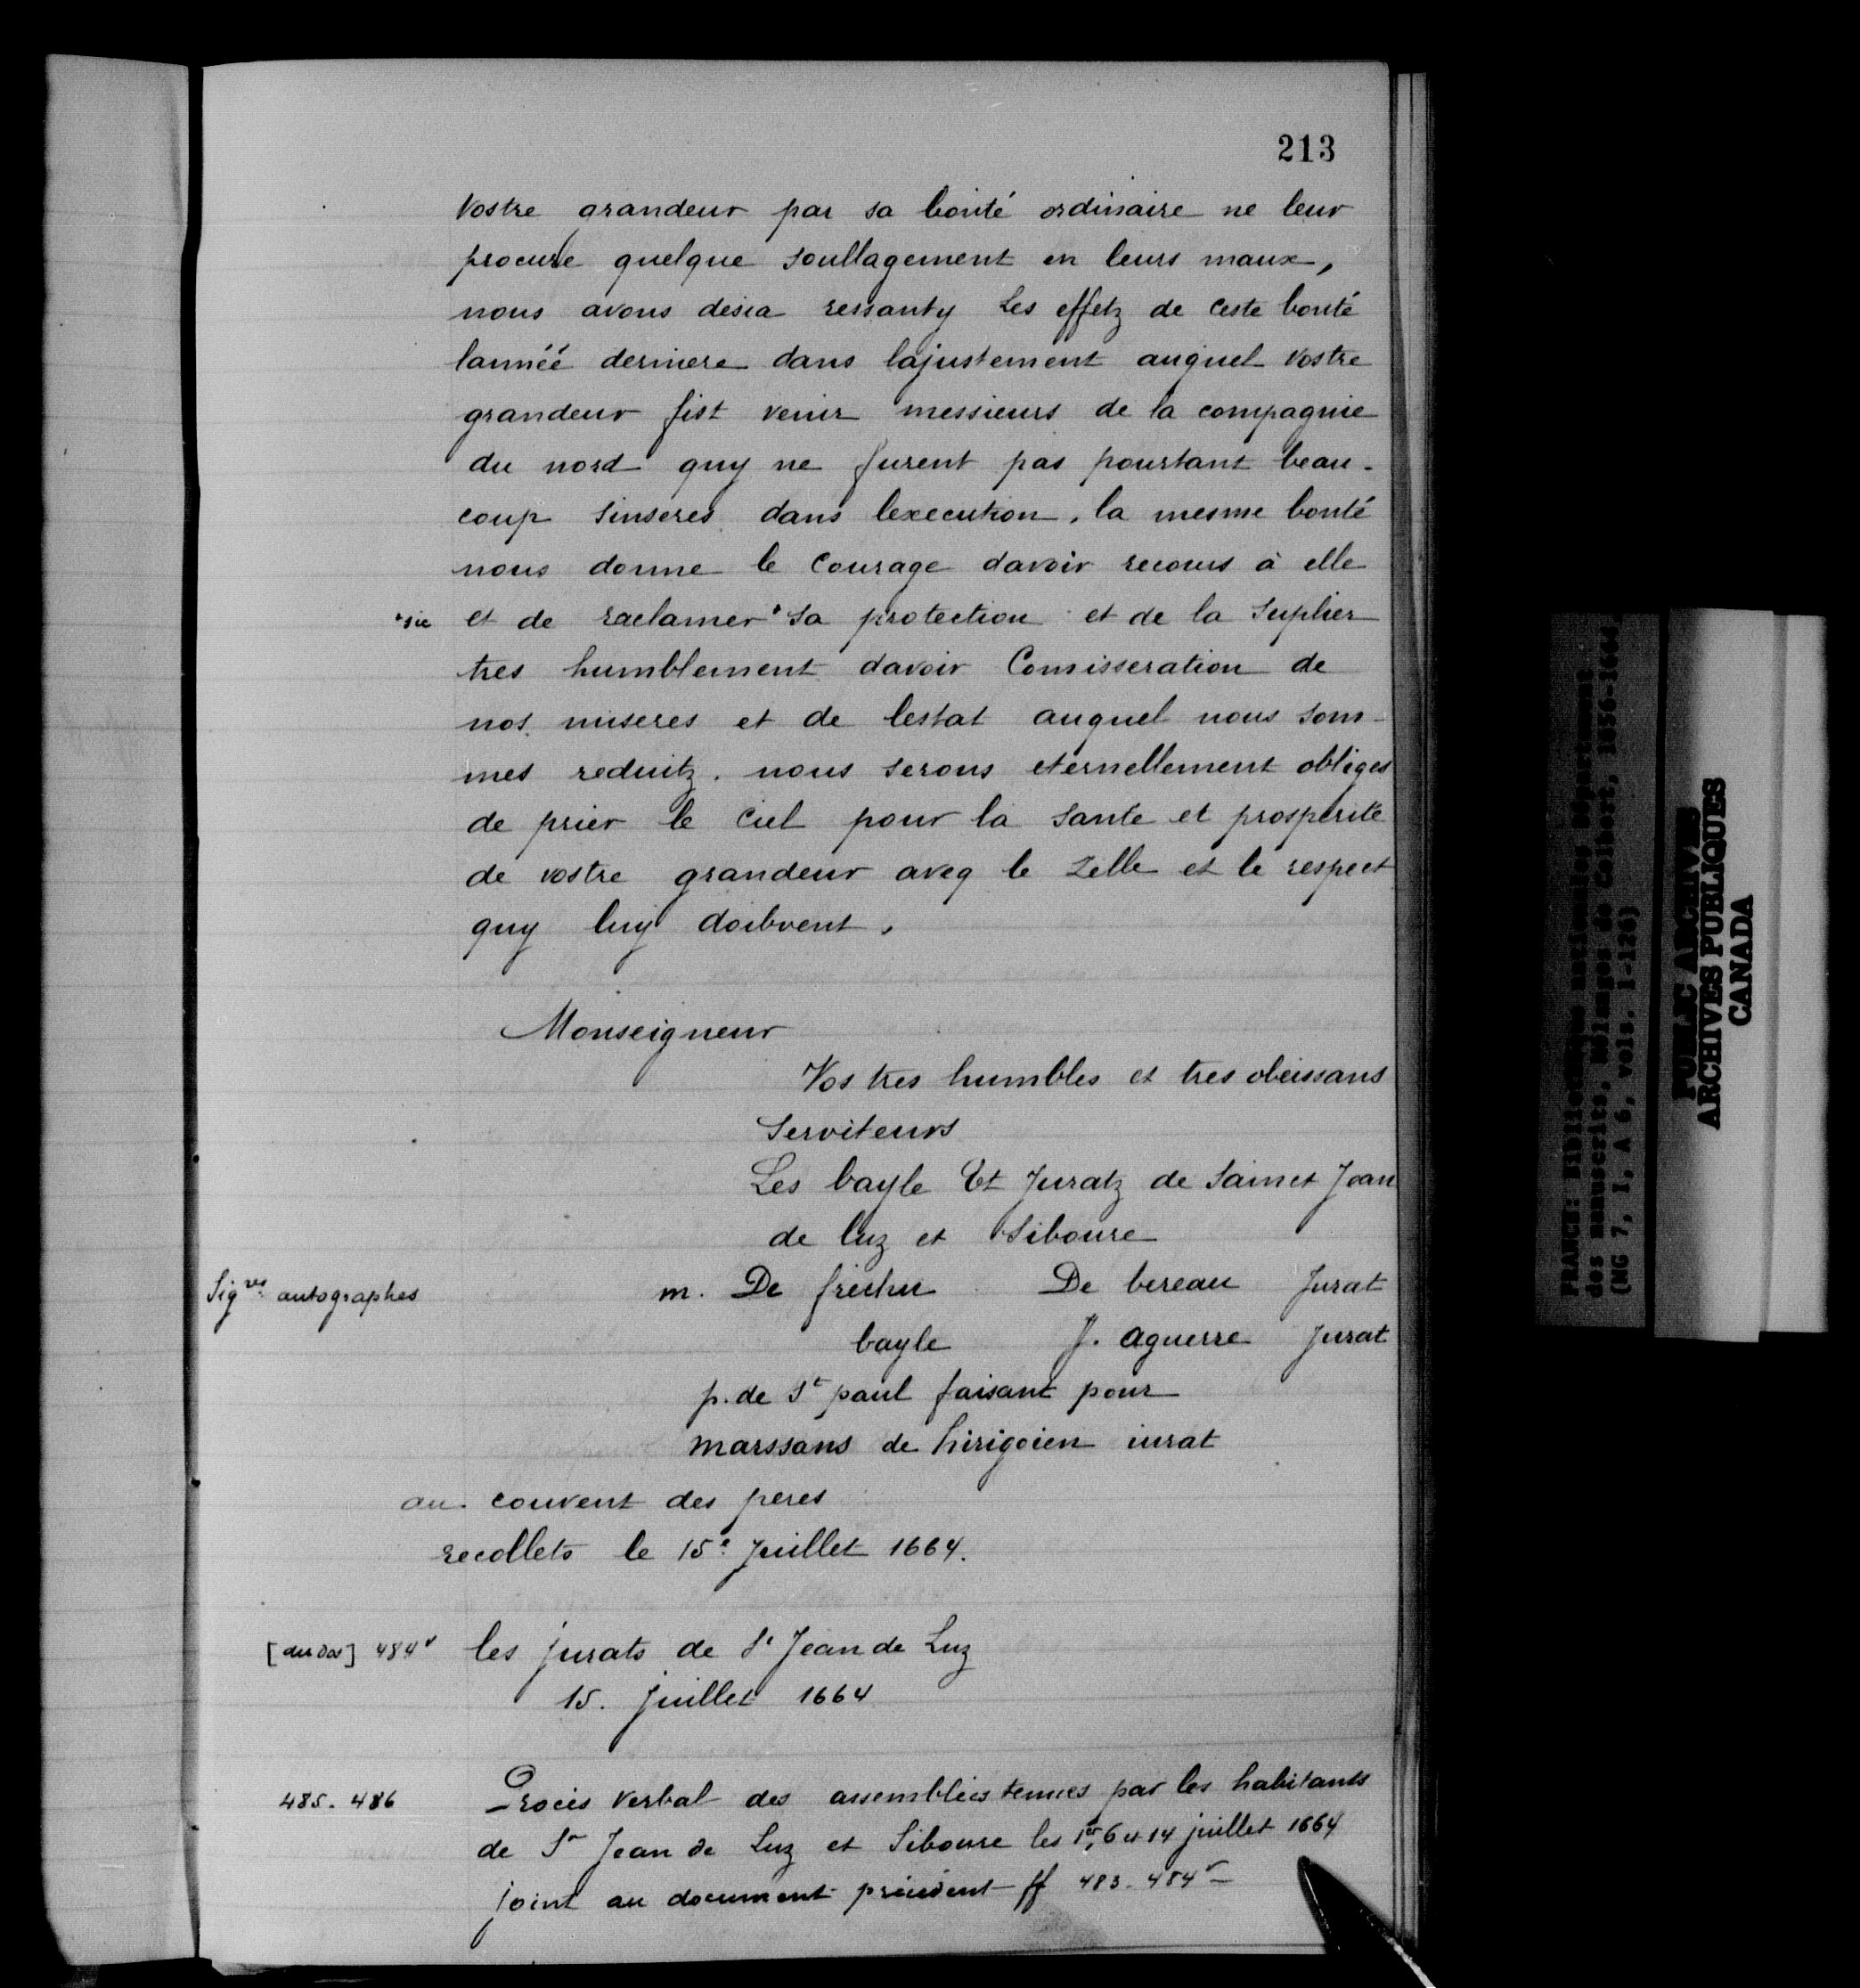 213
vostre grandeur par sa bonté ordinaire ne leur
procure quelque soullagement en leurs maux,
nous avons desia ressanty les effetz de ceste bonté
lannéé derniere dans lajustement auquel vostre
grandeur fist venir messieurs de la compagnie
du nord quy ne furent pas pourtant beau-
coup sinseres dans lexecution. la mesme bonté
nous donne le Courage davoir recours à elle
*sic et de raclamer* sa protection et de la suplier
tres humblement davoir Comisseration de
nos miseres et de lestat auquel nous som-
mes reduitz. nous serons eternellement obliges
de prier le Ciel pour la santé et prosperité
de vostre grandeur aveq le zelle et le respect
quy luy doibvent.
Monseigneur
Vos tres humbles et tres obeissans
Serviteurs
Les bayle Et Juratz de Sainct Jean
de luz et Siboure
Sig.res autographes m. De frechu De bereau Jurat
bayle J. aguerre Jurat
p. de St paul faisant pour
marssans de hirigoien iurat
au couvent des peres
recollets le 15e Juillet 1664.
[au dos] 484v les jurats de St Jean de Luz
15. juillet 1664
485. 486 Procès verbal des assemblées tenues par les habitants
de St Jean de Luz et Siboure les 1er, 6 et 14 juillet 1664
joint au document précédent ff 483-484v
FRANCE: Bibliothèque nationale, Département
des manuscrits, Mélanges de Colbert, 1656-1664
(MG 7, I, A 6, vols. 1-126)
PUBLIC ARCHIVES
ARCHIVES PUBLIQUES
CANADA